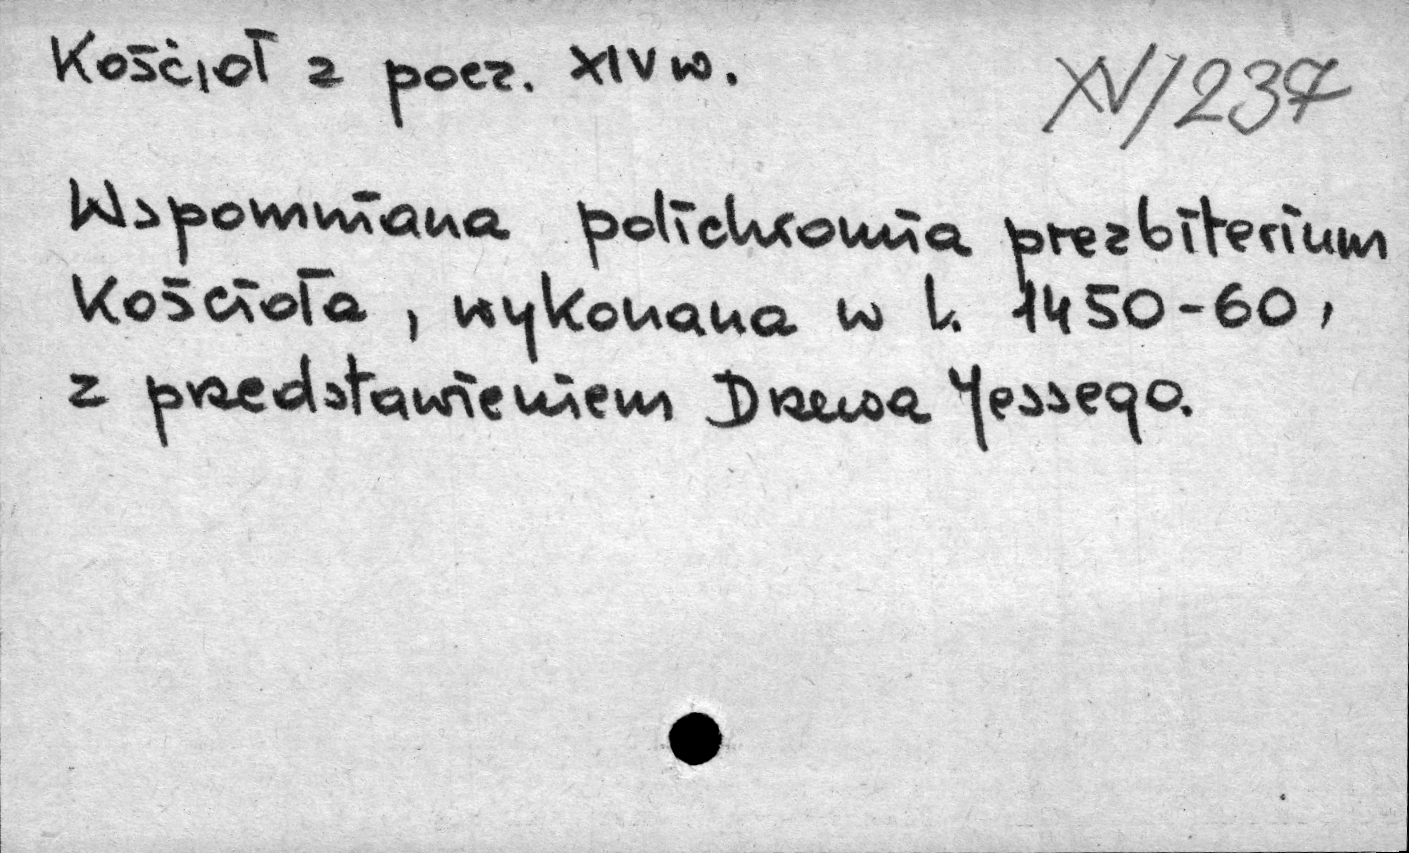 Kościoł z pocz. XIV w.
XV/237
Wspomniana polichromia prezbiterium
Kościoła, wykonana w l. 1450-60,
z przedstawieniem Drzewa Jessego.